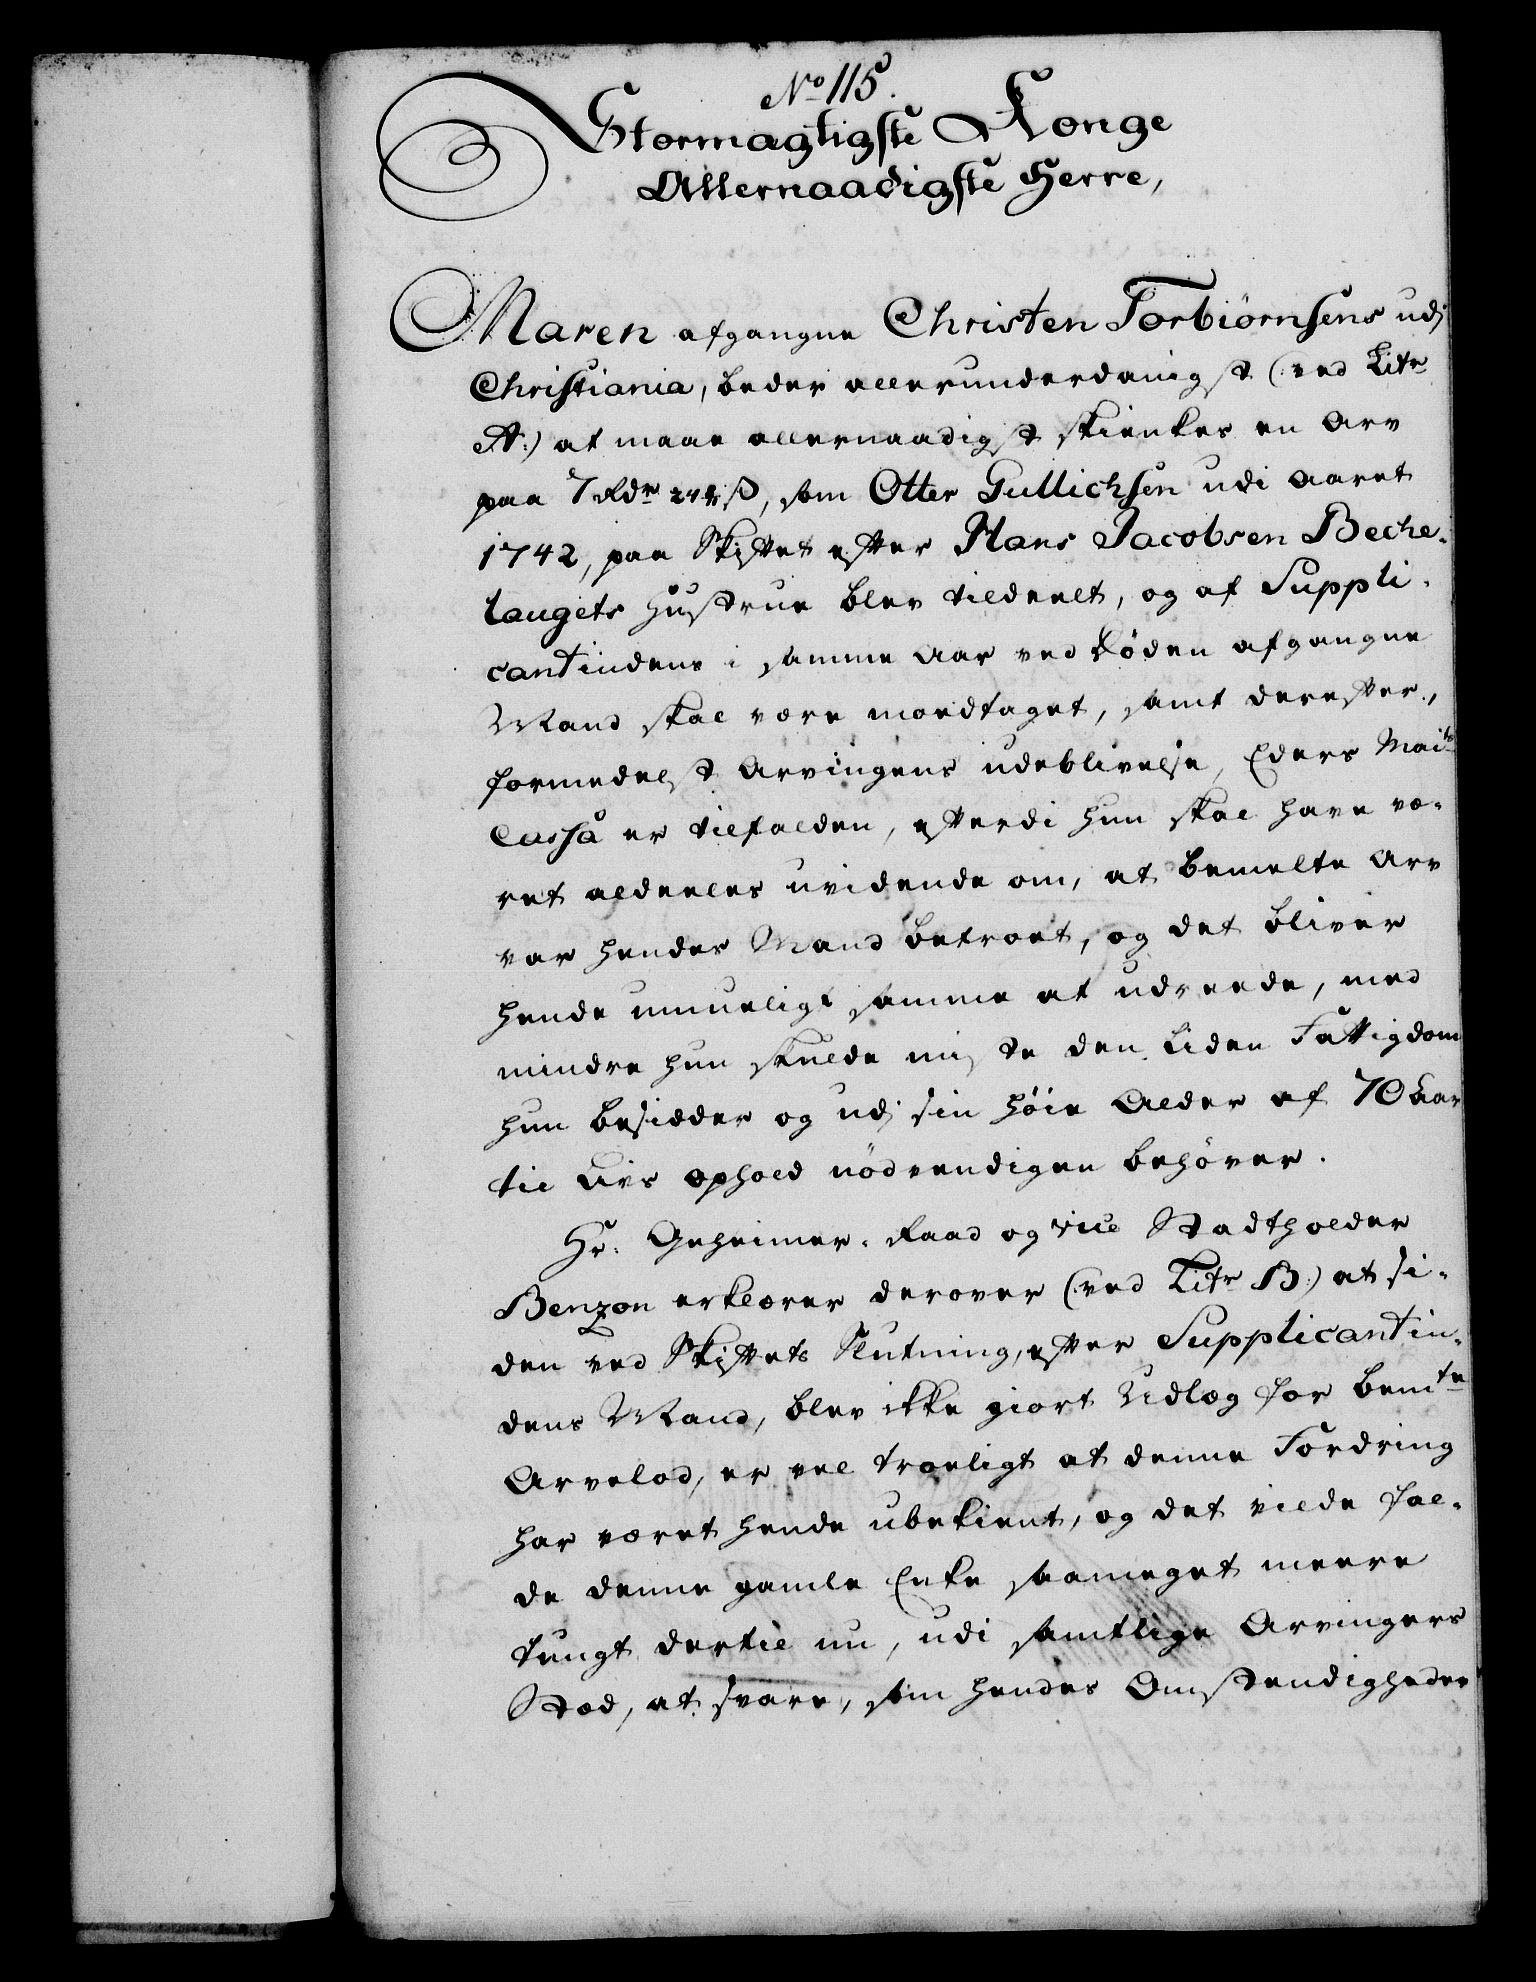 No 115.
Stormagtigste Konge
Allernaadigste Herre,
Maren afgangne Christen Torbiørnsens udj
Christiania, beder allerunderdanigst (:ved Litr
A:) at maae allernaadigst skienkes en Arv
paa 7 Rdr 24 ß, som Otter Gullichsen udi Aaret
1742, paa Skiftet efter Hans Jacobsen Beche-
laugets Hustrue blev tildeelt, og af Suppli-
cantindens i samme Aar ved Døden afgangne
Mand skal være modtaget, samt derefter,
formedelst Arvingens udeblivelse, Eders Maits
Cassa er tilfalden, efterdi hun skal have væ-
ret aldeeles uvidende om, at bemelte Arv
var hendes Mand betroet, og det bliver
hende umueligt samme at udreede, med
mindre hun skulde miste den liden Fattigdom
hun besidder og udj sin høie Alder af 70 Aar
til Livs ophold nødvendigen behøver.
Hr. Geheimer-Raad og vice Stadtholder
Benzon erklærer derover (:ved Litr B:) at si-
den ved Skiftets Slutning, efter Supplicantin-
dens Mand, blev ikke giort Udlæg for bemte
Arvelod, er vel troeligt at denne Fordring
har været hende ubekient, og det vilde fal-
de denne gamle Enke saameget meere
tungt dertil nu, udi samtlige Arvingers
Stæd, at svare, som hendes Omstændigheder